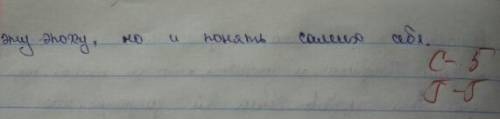 эту эпоху, но и понять самих себя.
С - 5
Г - 5